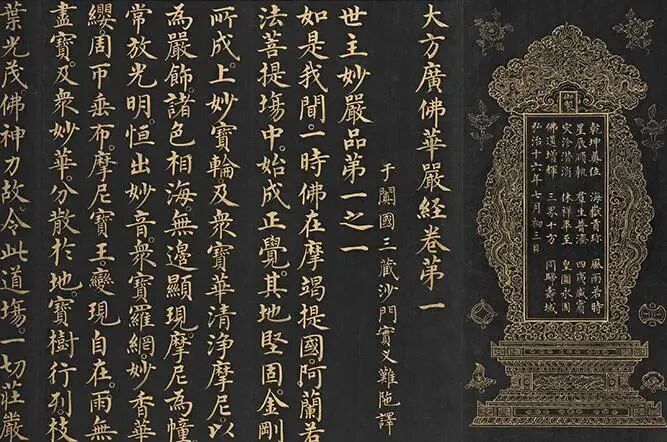 御製
乾坤奠位 海嶽肅弥 風雨若時
星辰順軌 羣生普濟 四夷咸賓
災沴潛消 休祥畢至 皇圖永固
佛道增輝 三界十方 同歸壽域
弘治十六年七月初三日
大方廣佛華嚴經卷第一
于闐國三藏沙門實叉難陁譯
世主妙嚴品第一之一
如是我聞。一時佛在摩竭提國。阿蘭若
法菩提場中。始成正覺。其地堅固。金剛
所成。上妙寶輪。及衆寶華。清淨摩尼。以
為嚴飾。諸色相海。無邊顯現。摩尼為幢。
常放光明。恒出妙音。衆寶羅網。妙香華
纓。周帀垂布。摩尼寶王。變現自在。雨無
盡寶。及衆妙華。分散於地。寶樹行列。枝
葉光茂。佛神力故。令此道場。一切莊嚴